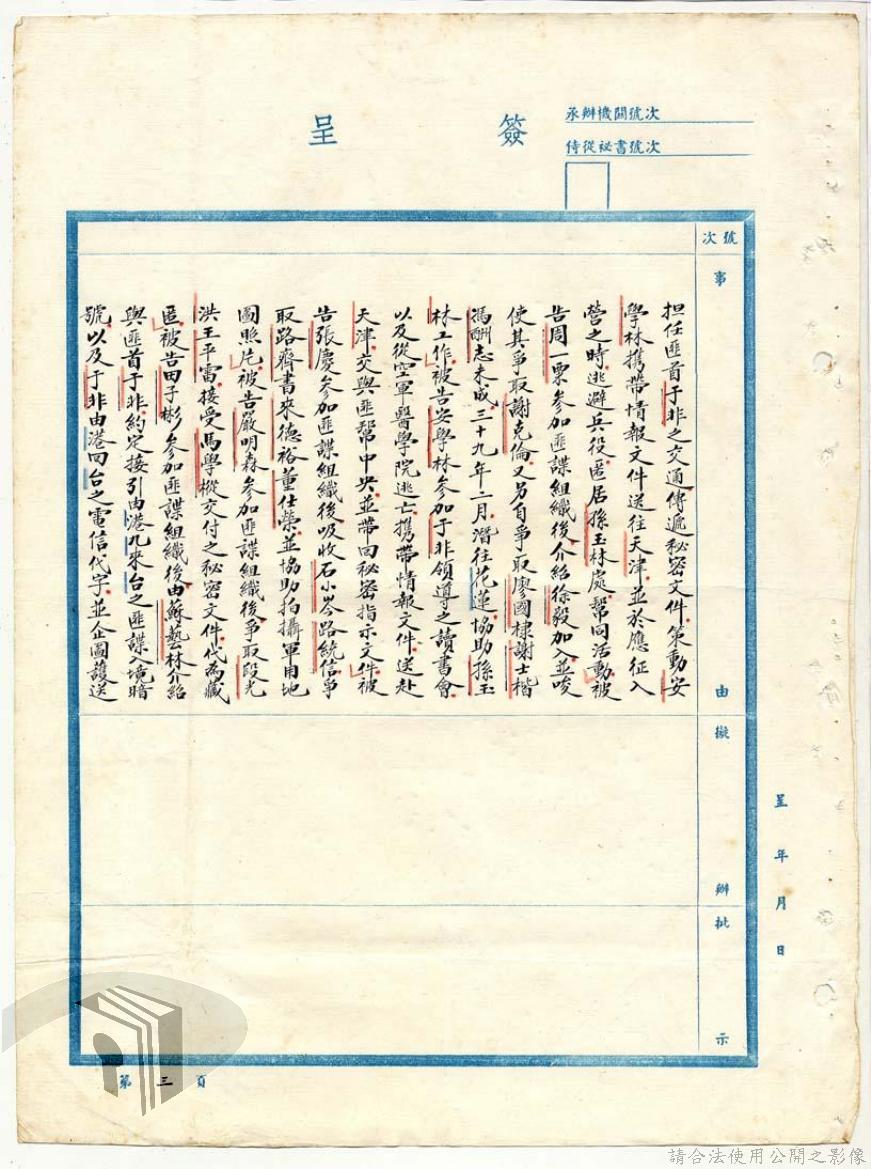 承辦機關號次
侍從祕書號次
簽呈
號次
事由
擬辦
批示
擔任匪首于非之交通傳遞秘密文件策動安
學林携帶情報文件送往天津並於應征入
營之時逃避兵役匿居孫玉林處幫同活動被
告周一粟參加匪諜組織後介紹徐毅加入並唆
使其爭取謝克倫又另自爭取廖國棣謝士楷
馮酬志未成三十九年二月潛往花蓮協助孫玉
林工作被告安學林參加于非領導之讀書會
以及從空軍醫學院逃亡携帶情報文件送赴
天津交與匪幫中央並帶回秘密指示文件被
告張慶參加匪諜組織後吸收石小岑路統信爭
取路齊書來德裕董仕榮並協助拍攝軍用地
圖照片被告嚴明森參加匪諜組織後爭取段光
洪王平雷接受馬學樅交付之秘密文件代為藏
匿被告田子彬參加匪諜組織後由蘇藝林介紹
與匪首于非約定接引由港九來台之匪諜入境暗
號以及于非由港回台之電信代字並企圖護送
呈 年 月 日
第三頁
請合法使用公開之影像